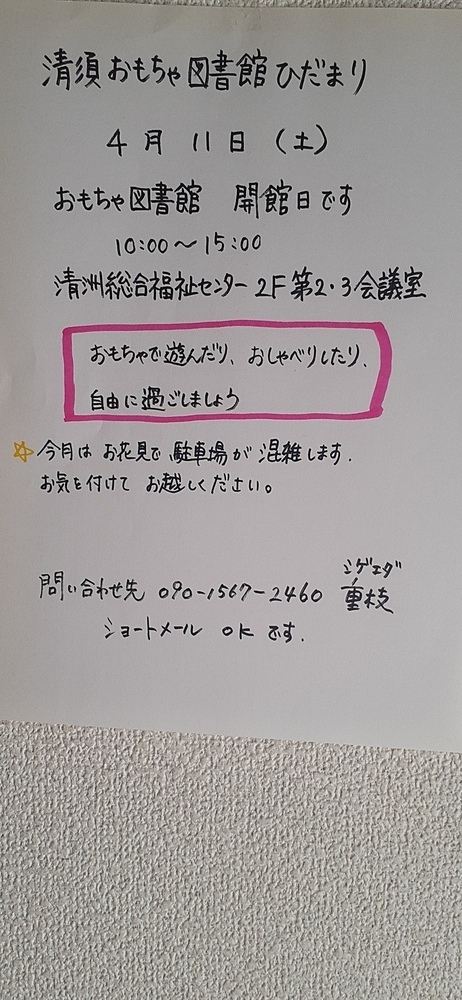 清須おもちゃ図書館ひだまり
4月 11日 (土)
おもちゃ図書館 開館日です
10:00〜15:00
清洲総合福祉センター 2F 第2・3会議室
おもちゃで遊んだり、おしゃべりしたり、
自由に過ごしましょう
☆今月は お花見で 駐車場が 混雑します.
お気を付けて お越しください。
シゲエダ
問い合わせ先 090-1567-2460 重枝
ショートメール OK です.